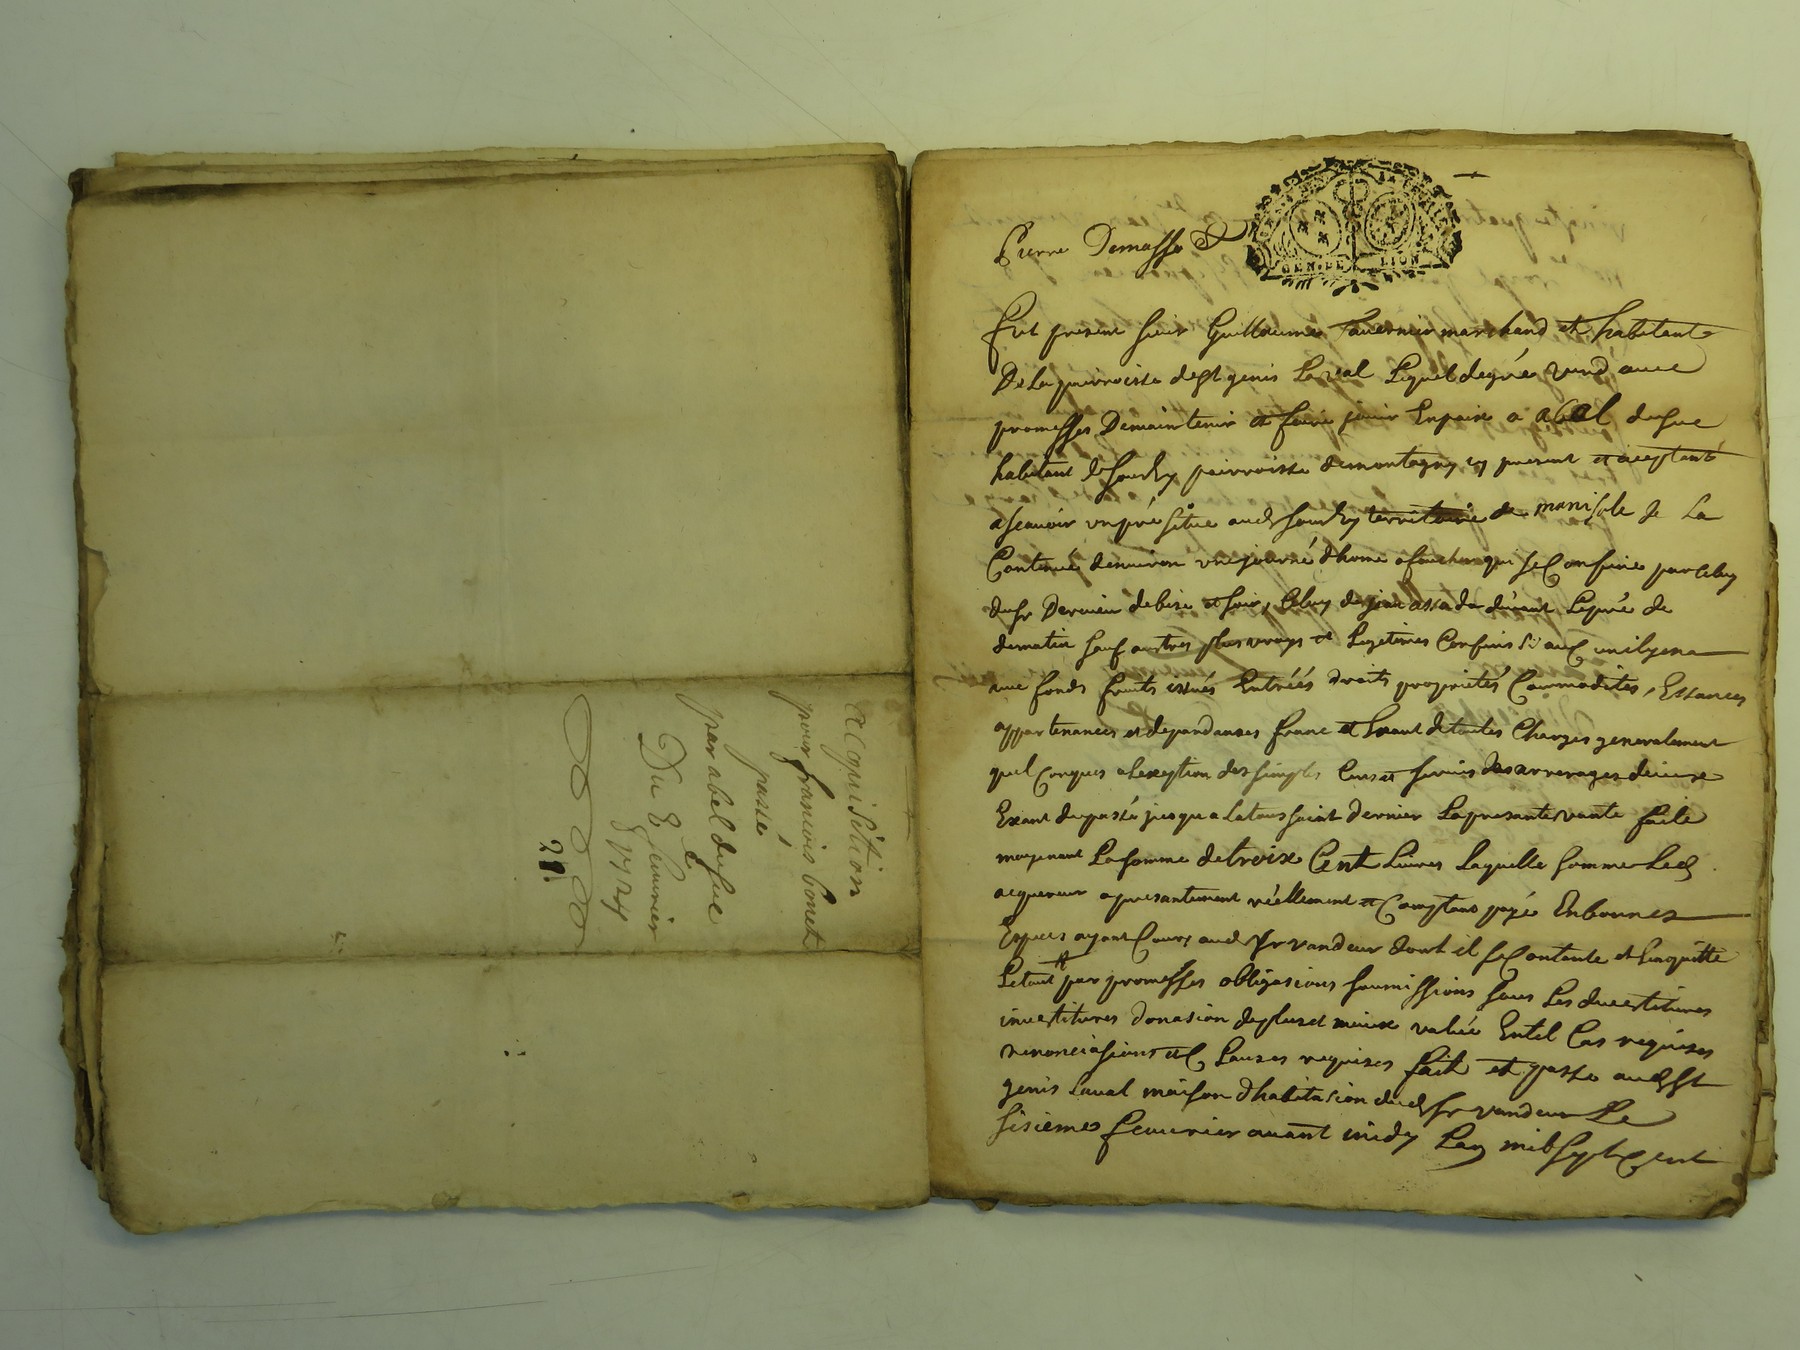 acquisition
pour francois bonet
passé
par abel dufue
Du 8 feurier
1724
21
GEN. DE LION
Pierre Demasso
Fut present sieur Guillaume Tauernier marchand et habitant
De La parroisse de st genis Laval Lequel de gré vend auec
promesses De maintenir et faire jouir En paix a abel dufue
habitant de sourzy parroisse de montagny icy present et aceptant
a scauoir un pré situe aud sourzy territoire de manisole de La
Contenue denuiron vne journé dhome a faucher qui se Confine par Celuy
dud sr Dernier de bise et soir, Celuy de jean Lepré de
de matin sauf autres plus vrays et Legitimes Confins si aucuns
auec fonds fruits issues Entréés droits proprietés Commodités, Essances
appartenances et dependances franc et Exant de toutes Charges generalement
quel Conques a lexeption des simples Cens et seruis des arrerages diceux
Exant du passé jusqua La toussaint dernier La presante vante faite
moyenant La somme de troix Cent Liures Laquelle somme Led
acquereur a presantement réellement et Comptant payé En bonnes
Especes ayant Cours aud sr vandeur dont il se Contante et Len quitte
Le tout par promesses obligasions soumissions sous Les deuestitures
inuestitures donasion de plus et mieux valüe En tel Cas requises
renonciasions et Clauses requises fait et passé aud st
genis Laual maison dhabitasion dud sr vandeur Le
sisieme feuurier auant midy Lan mil sept Cent